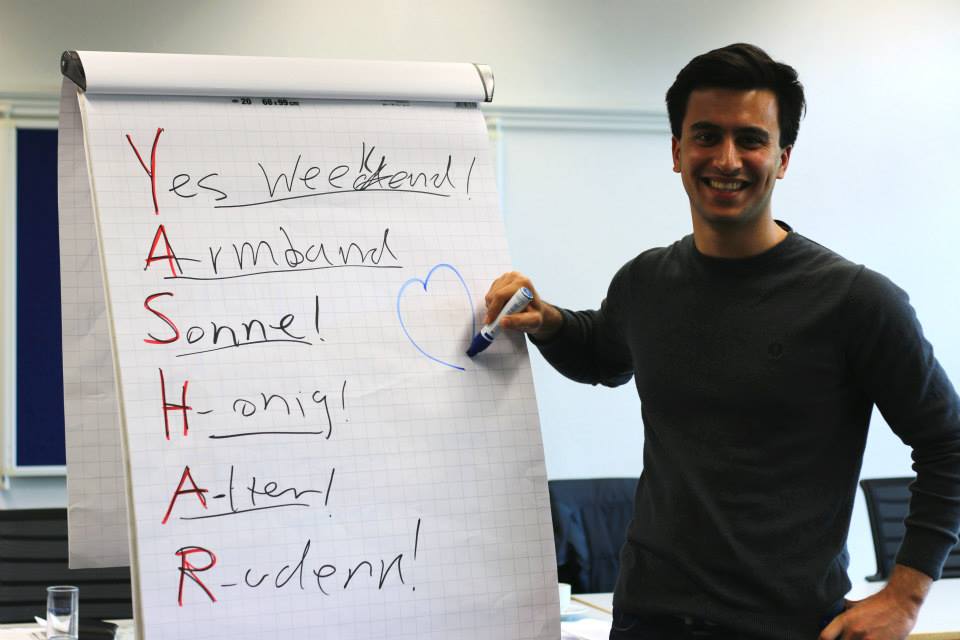 20 68x99cm
Yes Weekend!
Armband
Sonne!
H-onig!
A-lter!
R-udern!